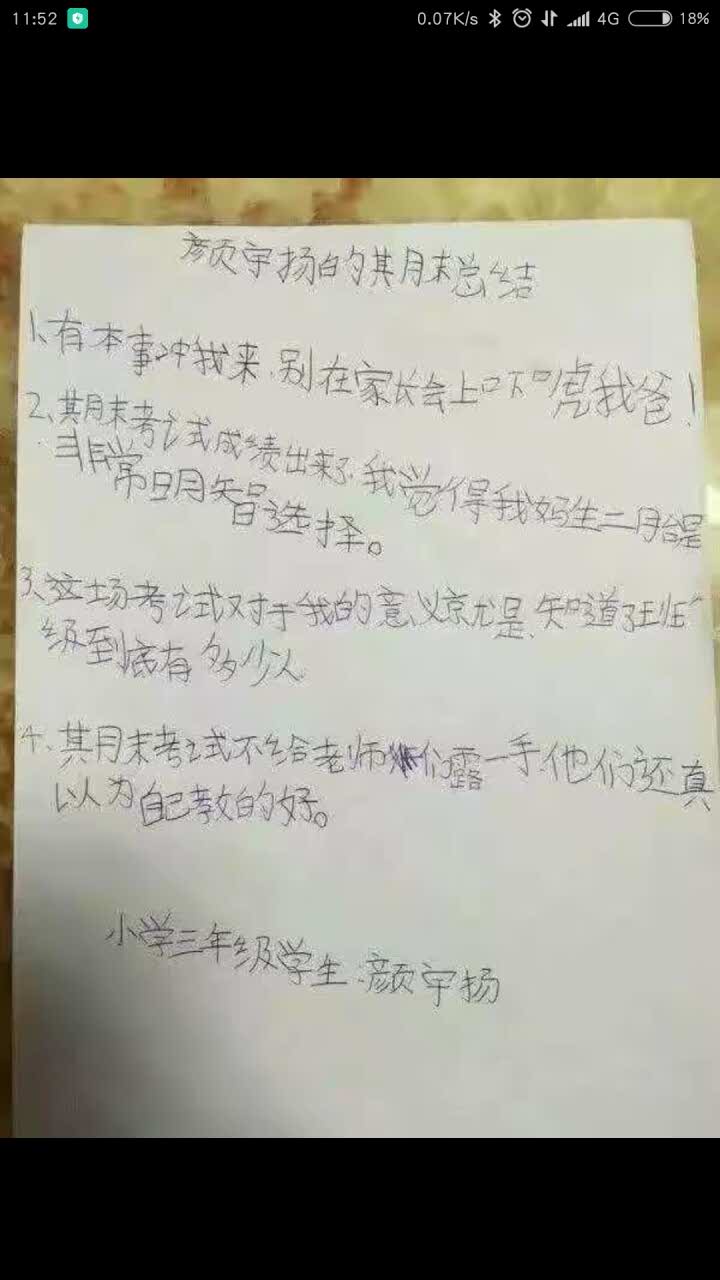 11:52
0.07K/s 4G 18%
颜宇扬的其月末总结
1、有本事冲我来、别在家长会上吓唬我爸！
2、其月末考试成绩出来了、我觉得我妈生二胎是
非常明智选择。
3、这场考试对于我的意义就是、知道了班
级到底有多少人
4、其月末考试不给老师们露一手、他们还真
以为自己教的好。
小学三年级学生、颜宇扬